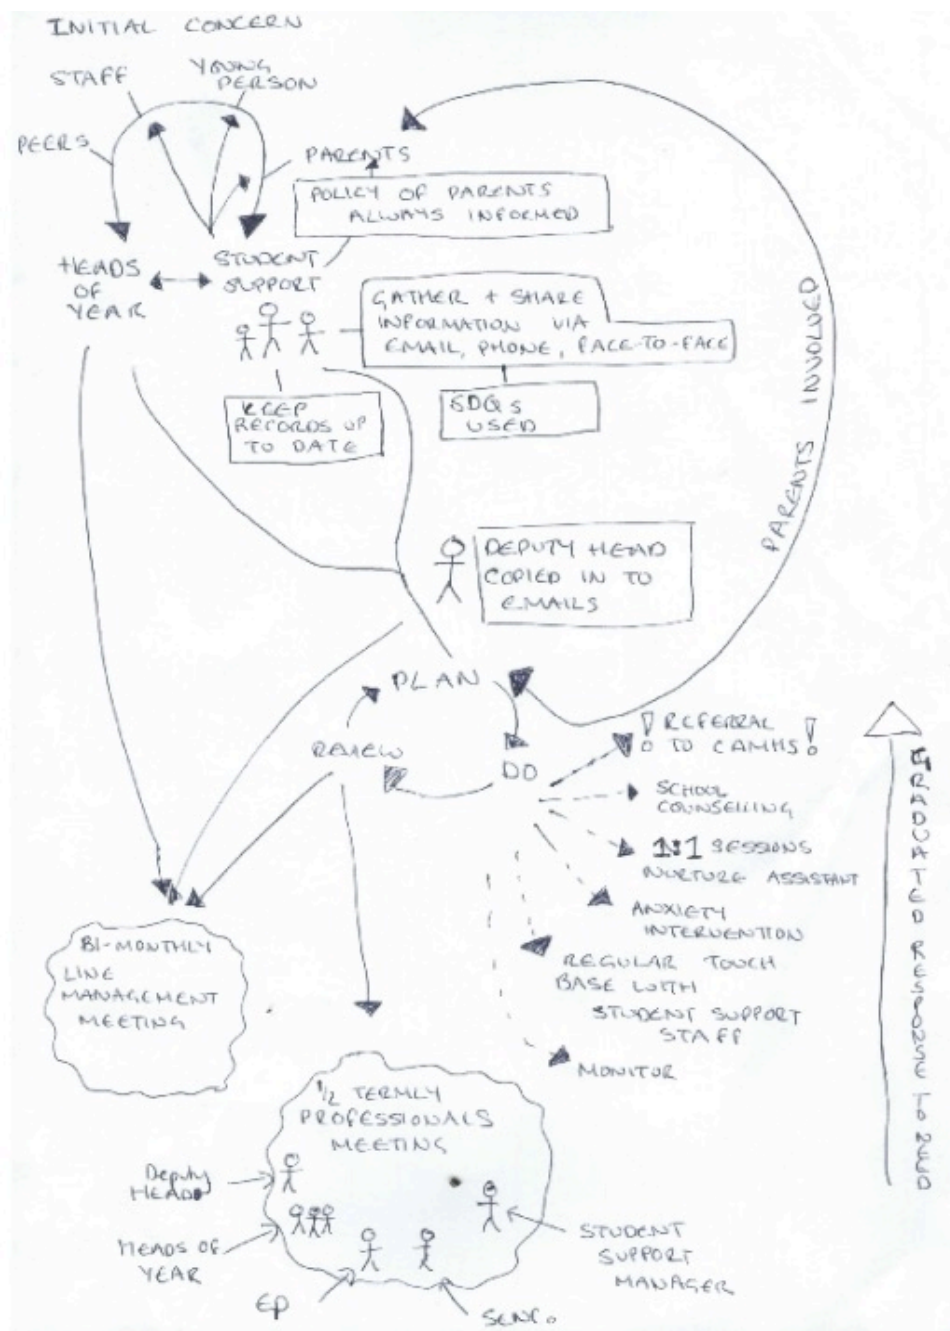 INITIAL CONCERN
STAFF
YOUNG
PERSON
PEERS
PARENTS
POLICY OF PARENTS
ALWAYS INFORMED
HEADS
OF
YEAR
STUDENT
SUPPORT
GATHER + SHARE
INFORMATION VIA
EMAIL, PHONE, FACE-TO-FACE
KEEP
RECORDS UP
TO DATE
SDQs
USED
PARENTS INVOLVED
DEPUTY HEAD
COPIED IN TO
EMAILS
PLAN
REVIEW
DO
! REFERRAL
TO CAMHS !
SCHOOL
COUNSELLING
1:1 SESSIONS
NURTURE ASSISTANT
ANXIETY
INTERVENTION
REGULAR TOUCH
BASE WITH
STUDENT SUPPORT
STAFF
MONITOR
GRADUATED RESPONSE TO NEED
BI-MONTHLY
LINE
MANAGEMENT
MEETING
1/2 TERMLY
PROFESSIONALS
MEETING
Deputy
HEAD
HEADS OF
YEAR
EP
SENCo
STUDENT
SUPPORT
MANAGER